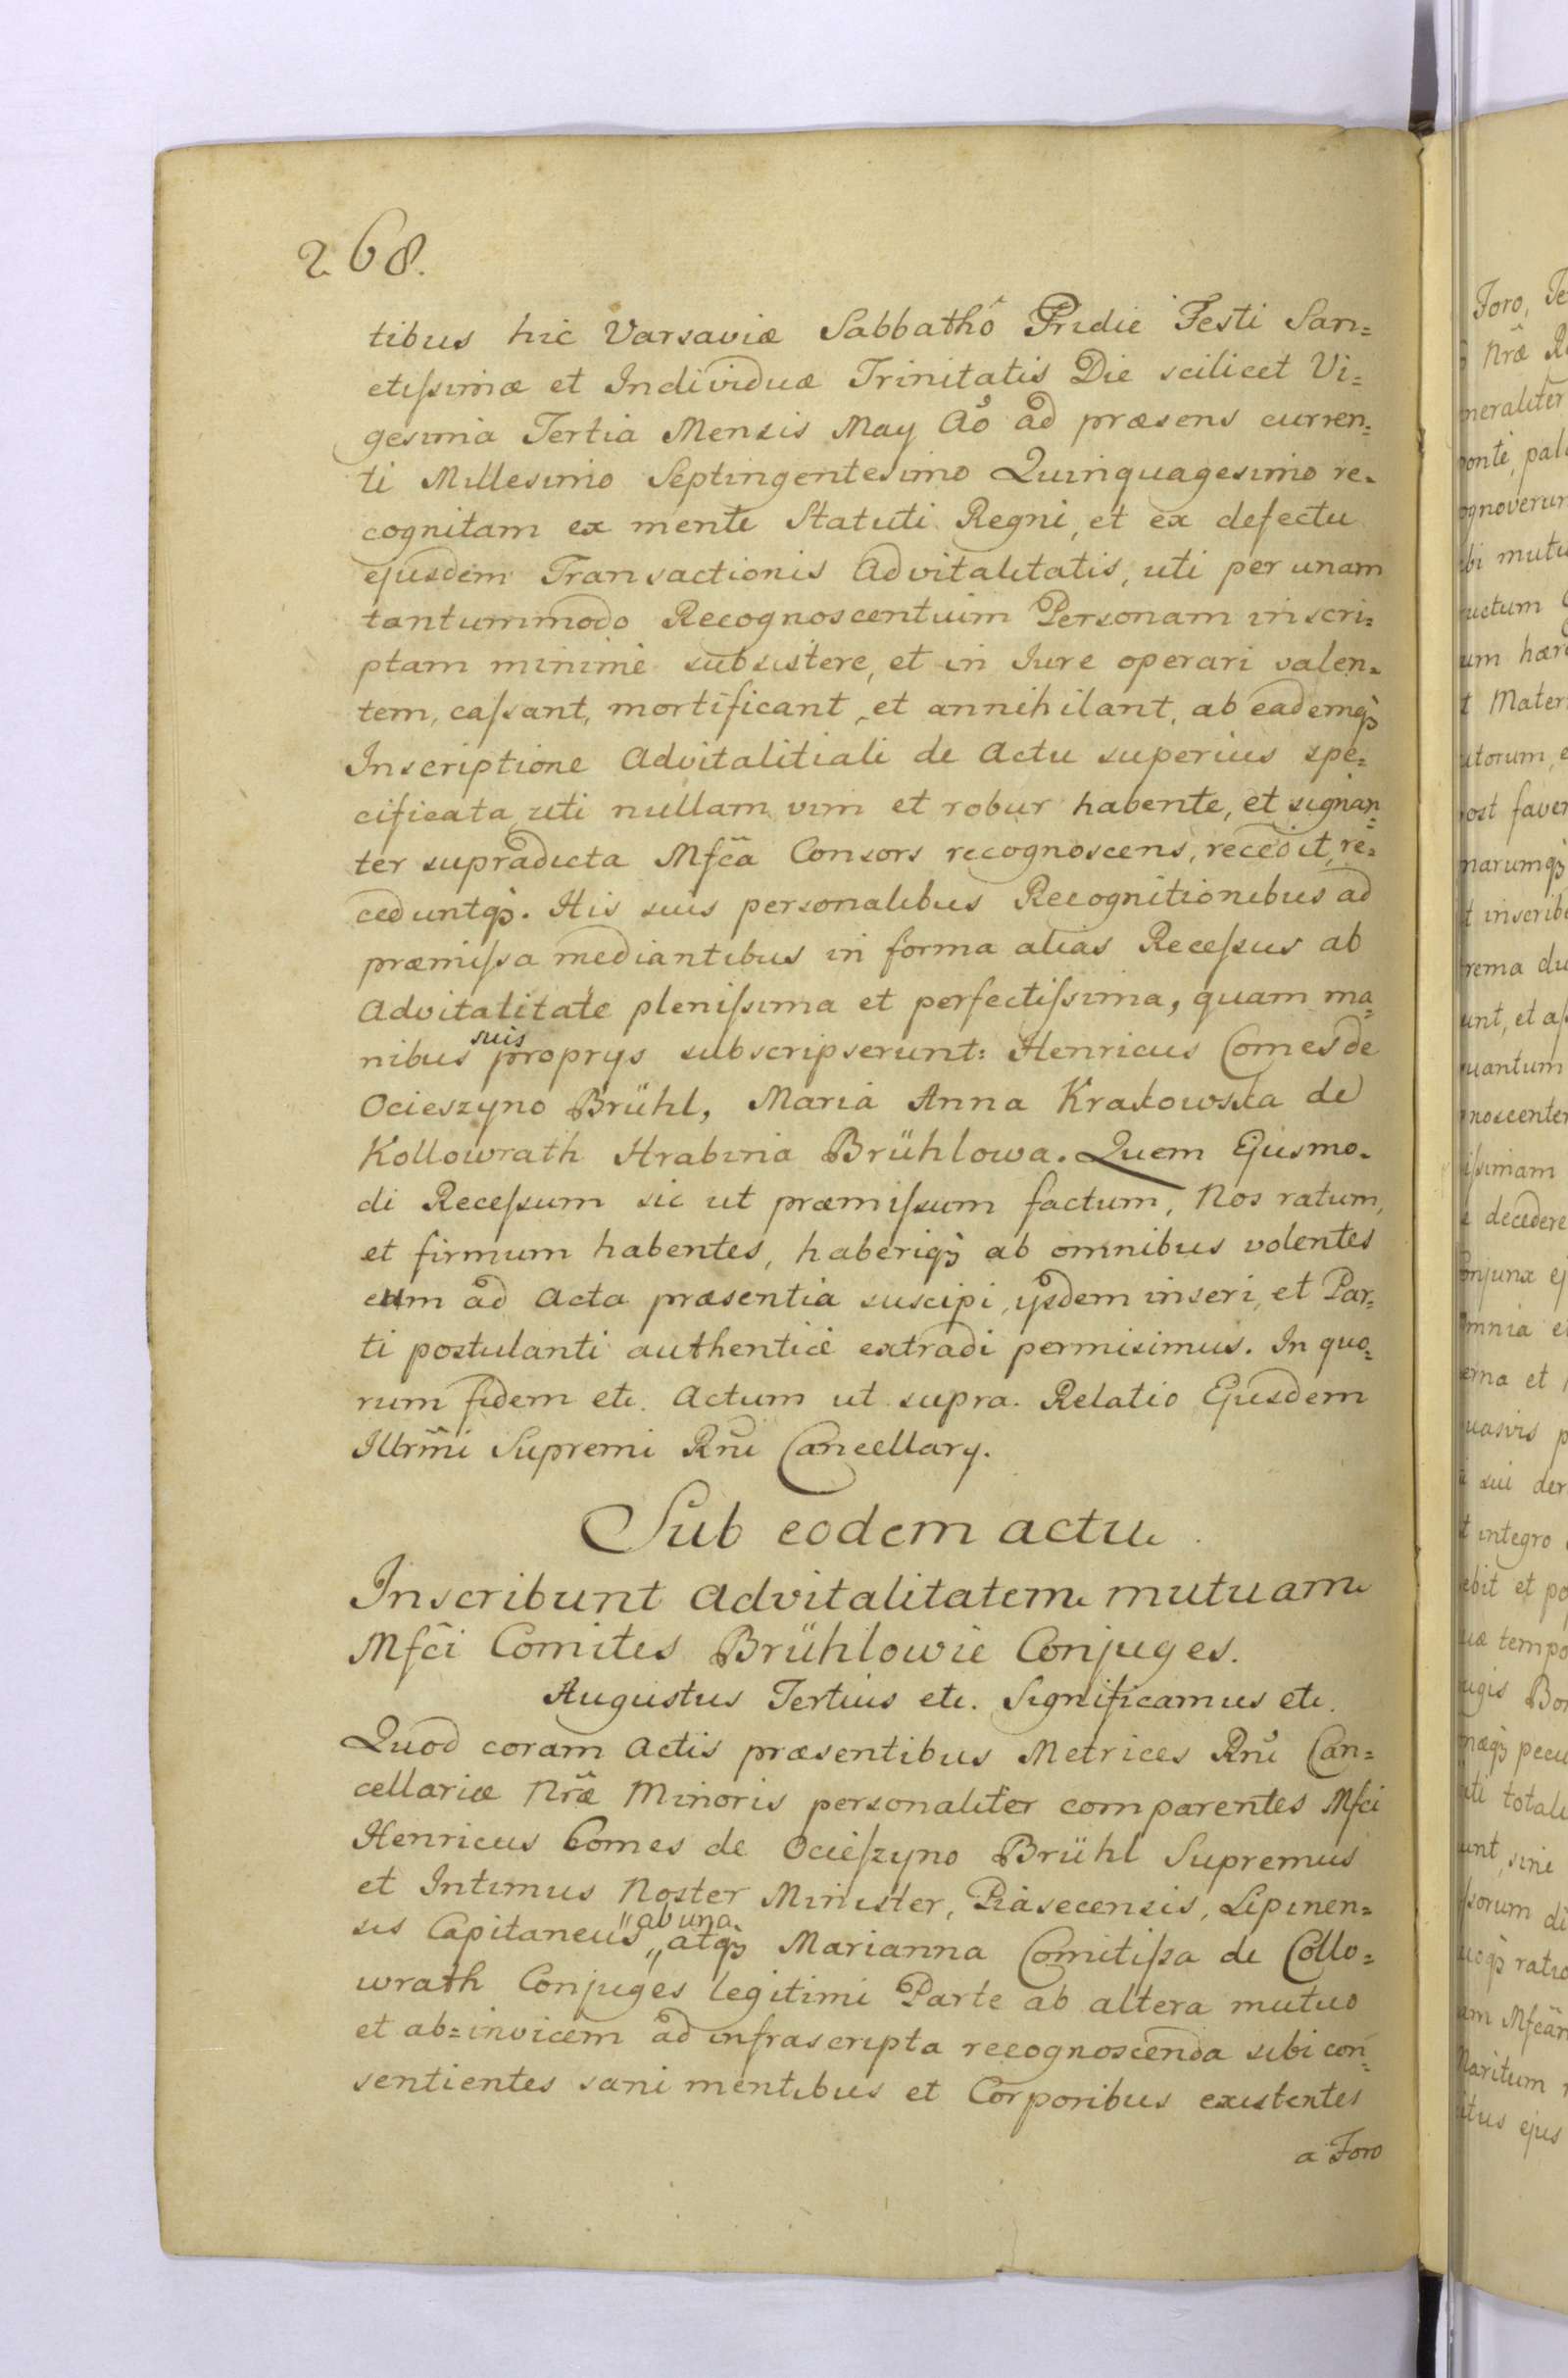 268.
tibus hic Varsaviæ Sabbathô Pridie Festi San=
ctiſsimæ et Individuæ Trinitatis Die scilicet Vi=
gesima Tertia Mensis May Aō ad præsens curren=
ti Millesimo Septingentesimo Quinquagesimo re=
cognitam ex mente Statuti Regni, et ex defectu
ejusdem Transactionis Advitalitatis, uti per unam
tantummodo Recognoscentium Personam inscri=
ptam minimè subsistere, et in Jure operari valen=
tem, caſsant, mortificant, et annihilant, ab eademqȝ
Inscriptione Advitalitiali de Actu superius spe=
cificata uti nullam vim et robur habente, et signan=
ter supradicta Mfc̃a Consors recognoscens, recedit, re=
ceduntqȝ. His suis personalibus Recognitionibus ad
præmiſsa mediantibus in forma alias Receſsus ab
Advitalitate pleniſsima et perfectiſsima, quam ma=
nibus suis proprys subscripserunt: Henricus Comes de
Ocieszyno Brühl, Maria Anna Krakowska de
Kollowrath Hrabina Brühlowa. Quem Ejusmo=
di Receſsum sic ut præmiſsum factum, Nos ratum,
et firmum habentes, haberiqȝ ab omnibus volentes
eum ad Acta præsentia suscipi, ysdem inseri, et Par=
ti postulanti authenticè extradi permisimus. In quo=
rum fidem etc. Actum ut supra. Relatio Ejusdem
Illrm̃i Supremi Rñi Cancellary.
Sub eodem actu
Inscribunt Advitalitatem mutuam
Mfc̃i Comites Brühlowie Conjuges.
Augustus Tertius etc. Significamus etc.
Quod coram Actis præsentibus Metrices Rñi Can=
cellariæ Nr̃æ Minoris personaliter comparentes Mfci
Henricus Comes de Ocieſzyno Brühl Supremus
et Intimus Noster Minister, Piasecensis, Lipinen=
sis Capitaneus " ab una " atqȝ Marianna Comitiſsa de Collo=
wrath Conjuges legitimi Parte ab altera mutuo
et ab=invicem ad infrascripta recognoscenda sibi con=
sentientes sani mentibus et Corporibus existentes
a Foro
Foro,
Nræ
neraliter
ponte, pal
ognoverun
bi mutu
uctum
um hær
t Mater
utorum, e
post faver
narumqȝ
t inscrib
rema du
unt, et aſ
uantum
noscenter
iſsimam
decedere
onjunx ej
omnia e
erna et
uasvis p
sui der
t integro
ebit et po
uæ tempo
ugis Bon
mæqȝ pecu
uti totali
unt, sine
sorum di
uoqȝ ratio
am Mfcãm
Maritum
itus ejus